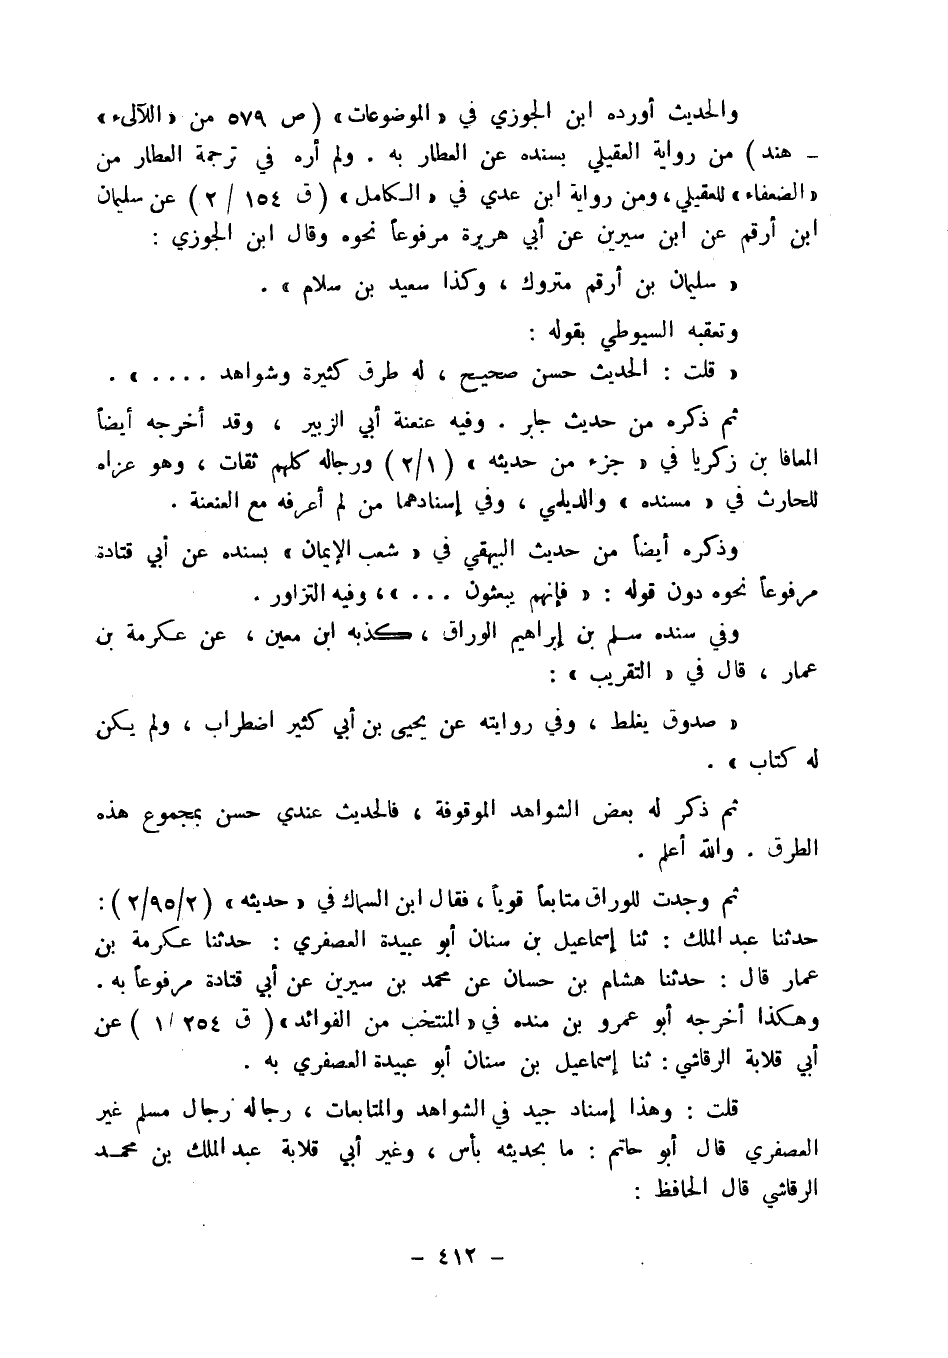 والحديث أورده ابن الجوزي في « الموضوعات » ( ص ٥٧٩ من « اللآلىء »
ـ هند ) من رواية العقيلي بسنده عن العطار به . ولم أره في ترجمة العطار من
« الضعفاء » للعقيلي ، ومن رواية ابن عدي في « الكامل » ( ق ١٥٤ / ٢ ) عن سليمان
ابن أرقم عن ابن سيرين عن أبي هريرة مرفوعاً نحوه وقال ابن الجوزي :
« سليمان بن أرقم متروك ، وكذا سعيد بن سلام » .
وتعقبه السيوطي بقوله :
« قلت : الحديث حسن صحيح ، له طرق كثيرة وشواهد . . . . » .
ثم ذكره من حديث جابر . وفيه عنعنة أبي الزبير ، وقد أخرجه أيضاً
المعافا بن زكريا في « جزء من حديثه » ( ٢/١ ) ورجاله كلهم ثقات ، وهو عزاه
للحارث في « مسنده » والديلمي ، وفي إسنادهما من لم أعرفه مع العنعنة .
وذكره أيضاً من حديث البيهقي في « شعب الإيمان » بسنده عن أبي قتادة
مرفوعاً نحوه دون قوله : « فإنهم يبعثون . . . » ، وفيه التزاور .
وفي سنده سلم بن إبراهيم الوراق ، كذبه ابن معين ، عن عكرمة بن
عمار ، قال في « التقريب » :
« صدوق يغلط ، وفي روايته عن يحيى بن أبي كثير اضطراب ، ولم يكن
له كتاب » .
ثم ذكر له بعض الشواهد الموقوفة ، فالحديث عندي حسن بمجموع هذه
الطرق . والله أعلم .
ثم وجدت للوراق متابعاً قوياً ، فقال ابن السماك في « حديثه » ( ٢/٩٥/٢ ) :
حدثنا عبد الملك : ثنا إسماعيل بن سنان أبو عبيدة العصفري : حدثنا عكرمة بن
عمار قال : حدثنا هشام بن حسان عن محمد بن سيرين عن أبي قتادة مرفوعاً به .
وهكذا أخرجه أبو عمرو بن منده في « المنتخب من الفوائد » ( ق ٢٥٤ / ١ ) عن
أبي قلابة الرقاشي : ثنا إسماعيل بن سنان أبو عبيدة العصفري به .
قلت : وهذا إسناد جيد في الشواهد والمتابعات ، رجاله رجال مسلم غير
العصفري قال أبو حاتم : ما بحديثه بأس ، وغير أبي قلابة عبد الملك بن محمد
الرقاشي قال الحافظ :
ـ ٤١٢ ـ